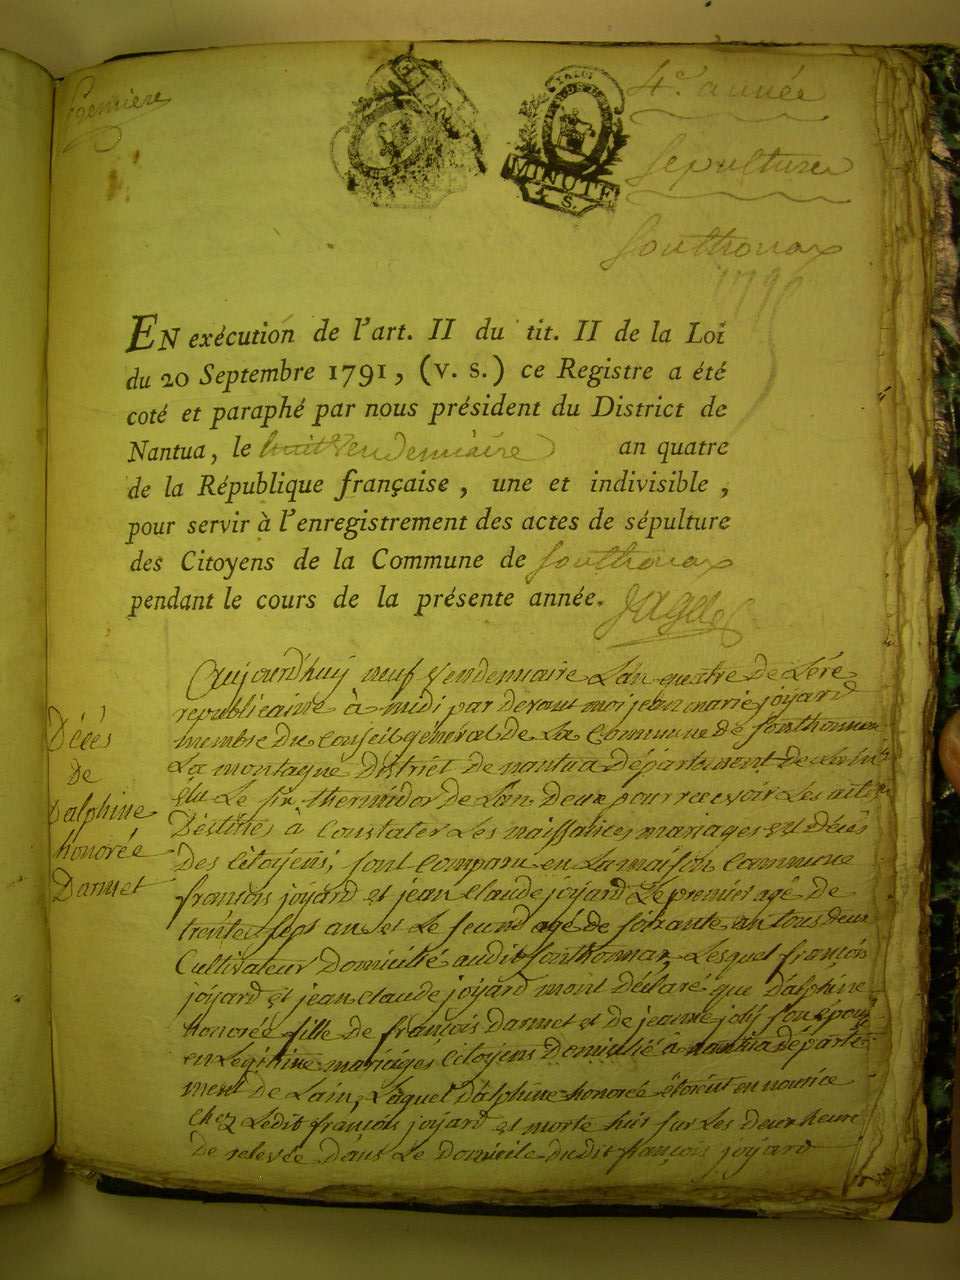 Première
4e. année
Sépultures
Southonax
179
MINUTE
4 S.
EN exécution de l'art. II du tit. II de la Loi
du 20 Septembre 1791, (v. s.) ce Registre a été
coté et paraphé par nous président du District de
Nantua, le huit Vendemiaire an quatre
de la République française, une et indivisible,
pour servir à l'enregistrement des actes de sépulture
des Citoyens de la Commune de Southonax
pendant le cours de la présente année.
Décès
De
Dalphine
honorée
Darmet
Aujourd'huy neuf Vendemiaire L'an quatre de L'ére
republicaine à midi par devant moi jean marie joyard
membre Du Conseil général de La Commune de Sonthonnax
La montagne District de nantua Département de Lain
élu Le six thermidor de L'an Deux pour recevoir Les actes
Destinés à Constater Les naissances mariages et Décès
Des Citoyens, sont Comparu en La maison Commune
françois joyard et jean Claude joyard Le premier agé de
trente sept an et Le second agé de soixante an tous deux
Cultivateur Domicilié audit Sonthonnax Lesquel françois
joyard et jean Claude joyard mont Déclaré que Dalphine
honorée fille de françois Darmet et de jeanne josy son épouse
en Legitime mariages Citoyens Domicilié à nantua Départe
ment de Lain, Laquel Dalphine honorée étoient en nourice
chez Ledit françois joyard et morte hier sur Les deux heure
De relevée Dans Le Domicile dudit françois joyard